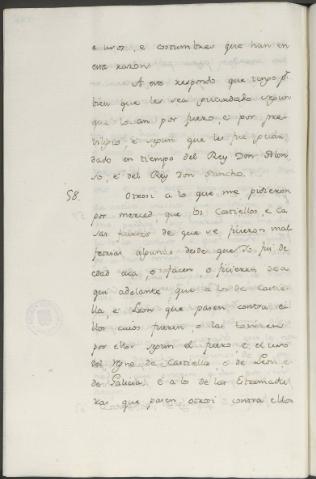 e usos, e costumbres que han en
esta razon.
A esto respondo que tengo por
bien que les sea guardado segun
que lo an por fuero, e por pre-
vilegio, e segun que les fue guar-
dado en tiempo del Rey Don Alon-
so, e del Rey Don Sancho.
58. Otrosi a lo que me pidieron
por merced, que los Castiellos, e ca-
sas fuertes de que se fizieron mal
fetrias algunas desde que Yo fui de
edad aca, o facen, o ficieren de a-
qui adelante, que a los de Castie-
lla, e Leon que pasen contra e-
llos cuios fueren, o las tovieren
por ellos segun el fuero e el uso
del Regno de Castiella e de Leon, e
de Galicia, e a lo de las Estremadu-
ras que pasen otrosi contra ellos